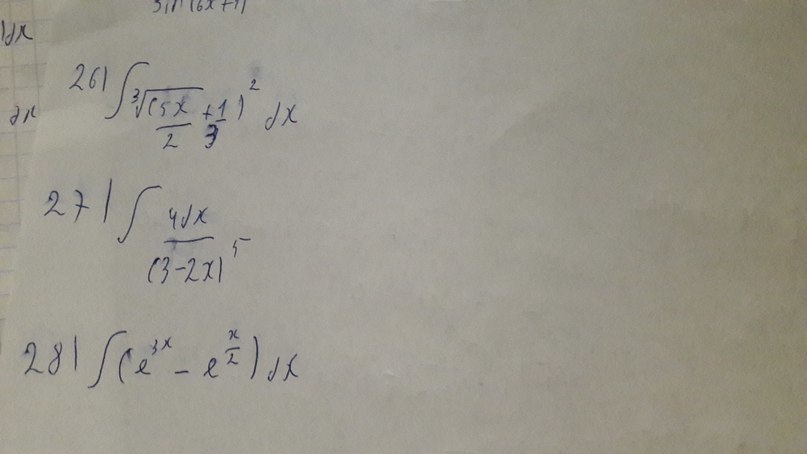 sin(6x+1)
dx
26) ∫ ∛(5x/2 + 1/3)² dx
dx
27) ∫ 4dx/(3-2x)⁵
28) ∫ (e^{3x} - e^{x/2}) dx